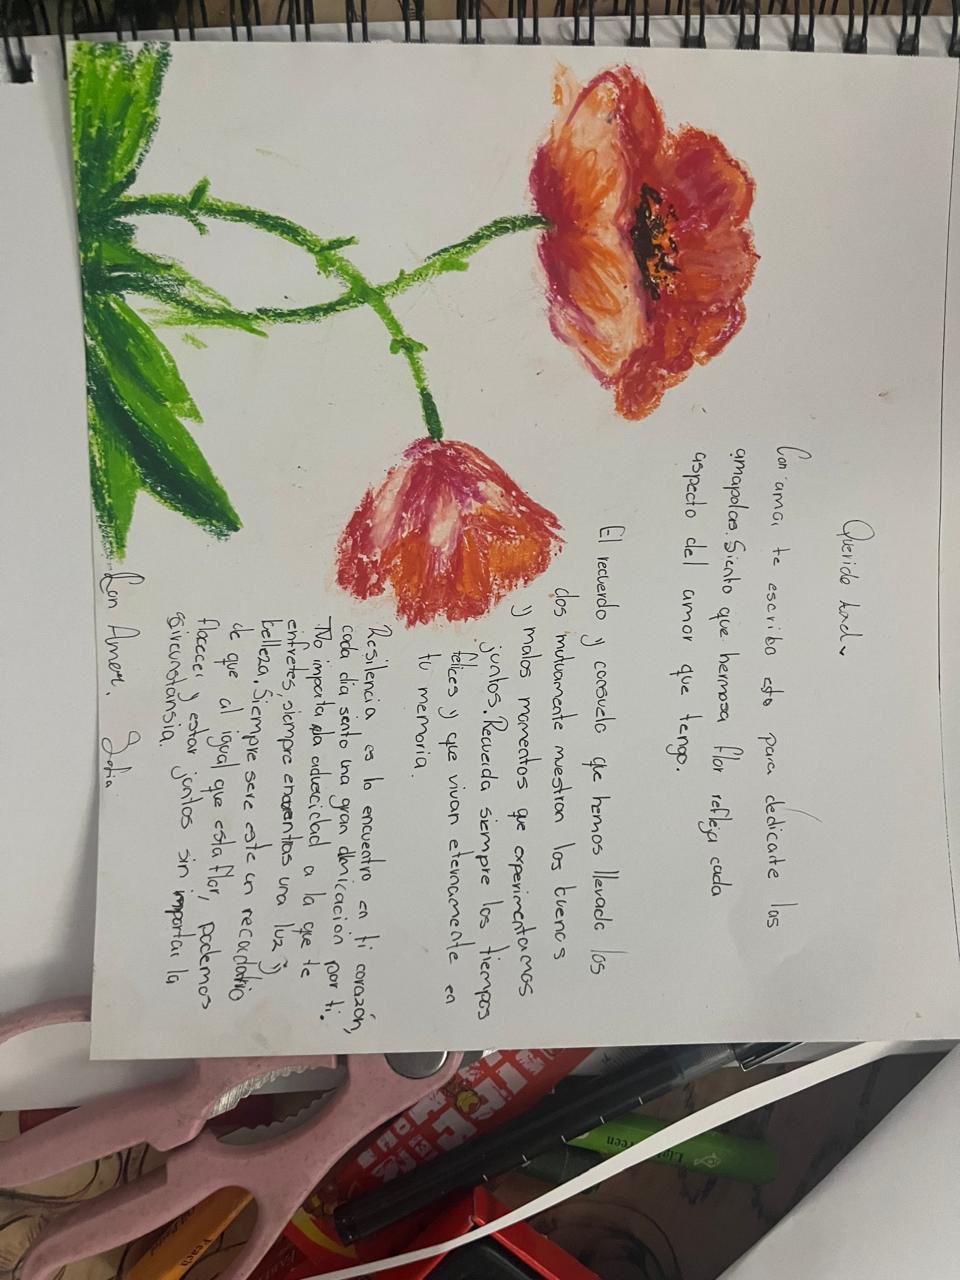 Querido
Con amor te escribo esto para dedicarte las
amapolas. Siento que hermosa flor refleja cada
aspecto del amor que tengo.
El recuerdo y consuelo que hemos llevado los
dos mutuamente muestran los buenos
y malos momentos que experimentamos
juntos. Recuerda siempre los tiempos
felices y que vivan eternamente en
tu memoria.
Resilencia es lo encuentro en ti corazón,
cada día sento una gran por ti.
No importa la advecidad a la que te
enfretes, siempre encuentras una luz y
belleza. Siempre sere este un recordatrio
de que al igual que esta flor, podemos
florecer y estar juntos sin importar la
circunstánsia.
Con Amor, Sofia
Peach